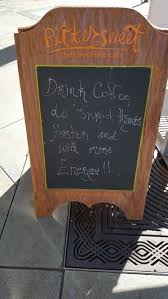 Bittersweet
Drink Coffee,
do stupid things
faster and
with more
Energy!!